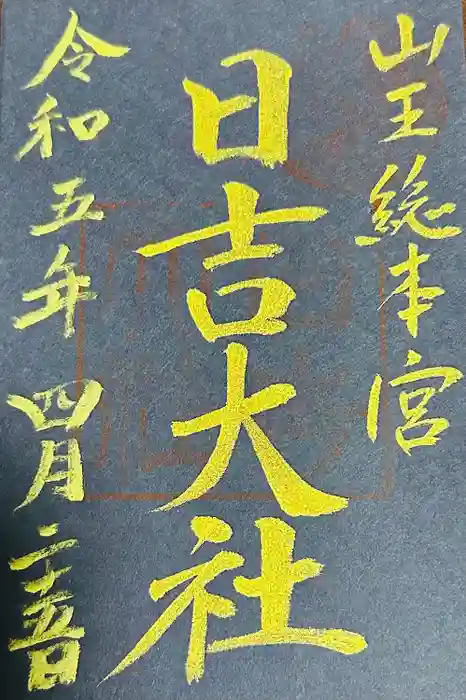 山王総本宮
日吉大社
令和五年四月二十五日